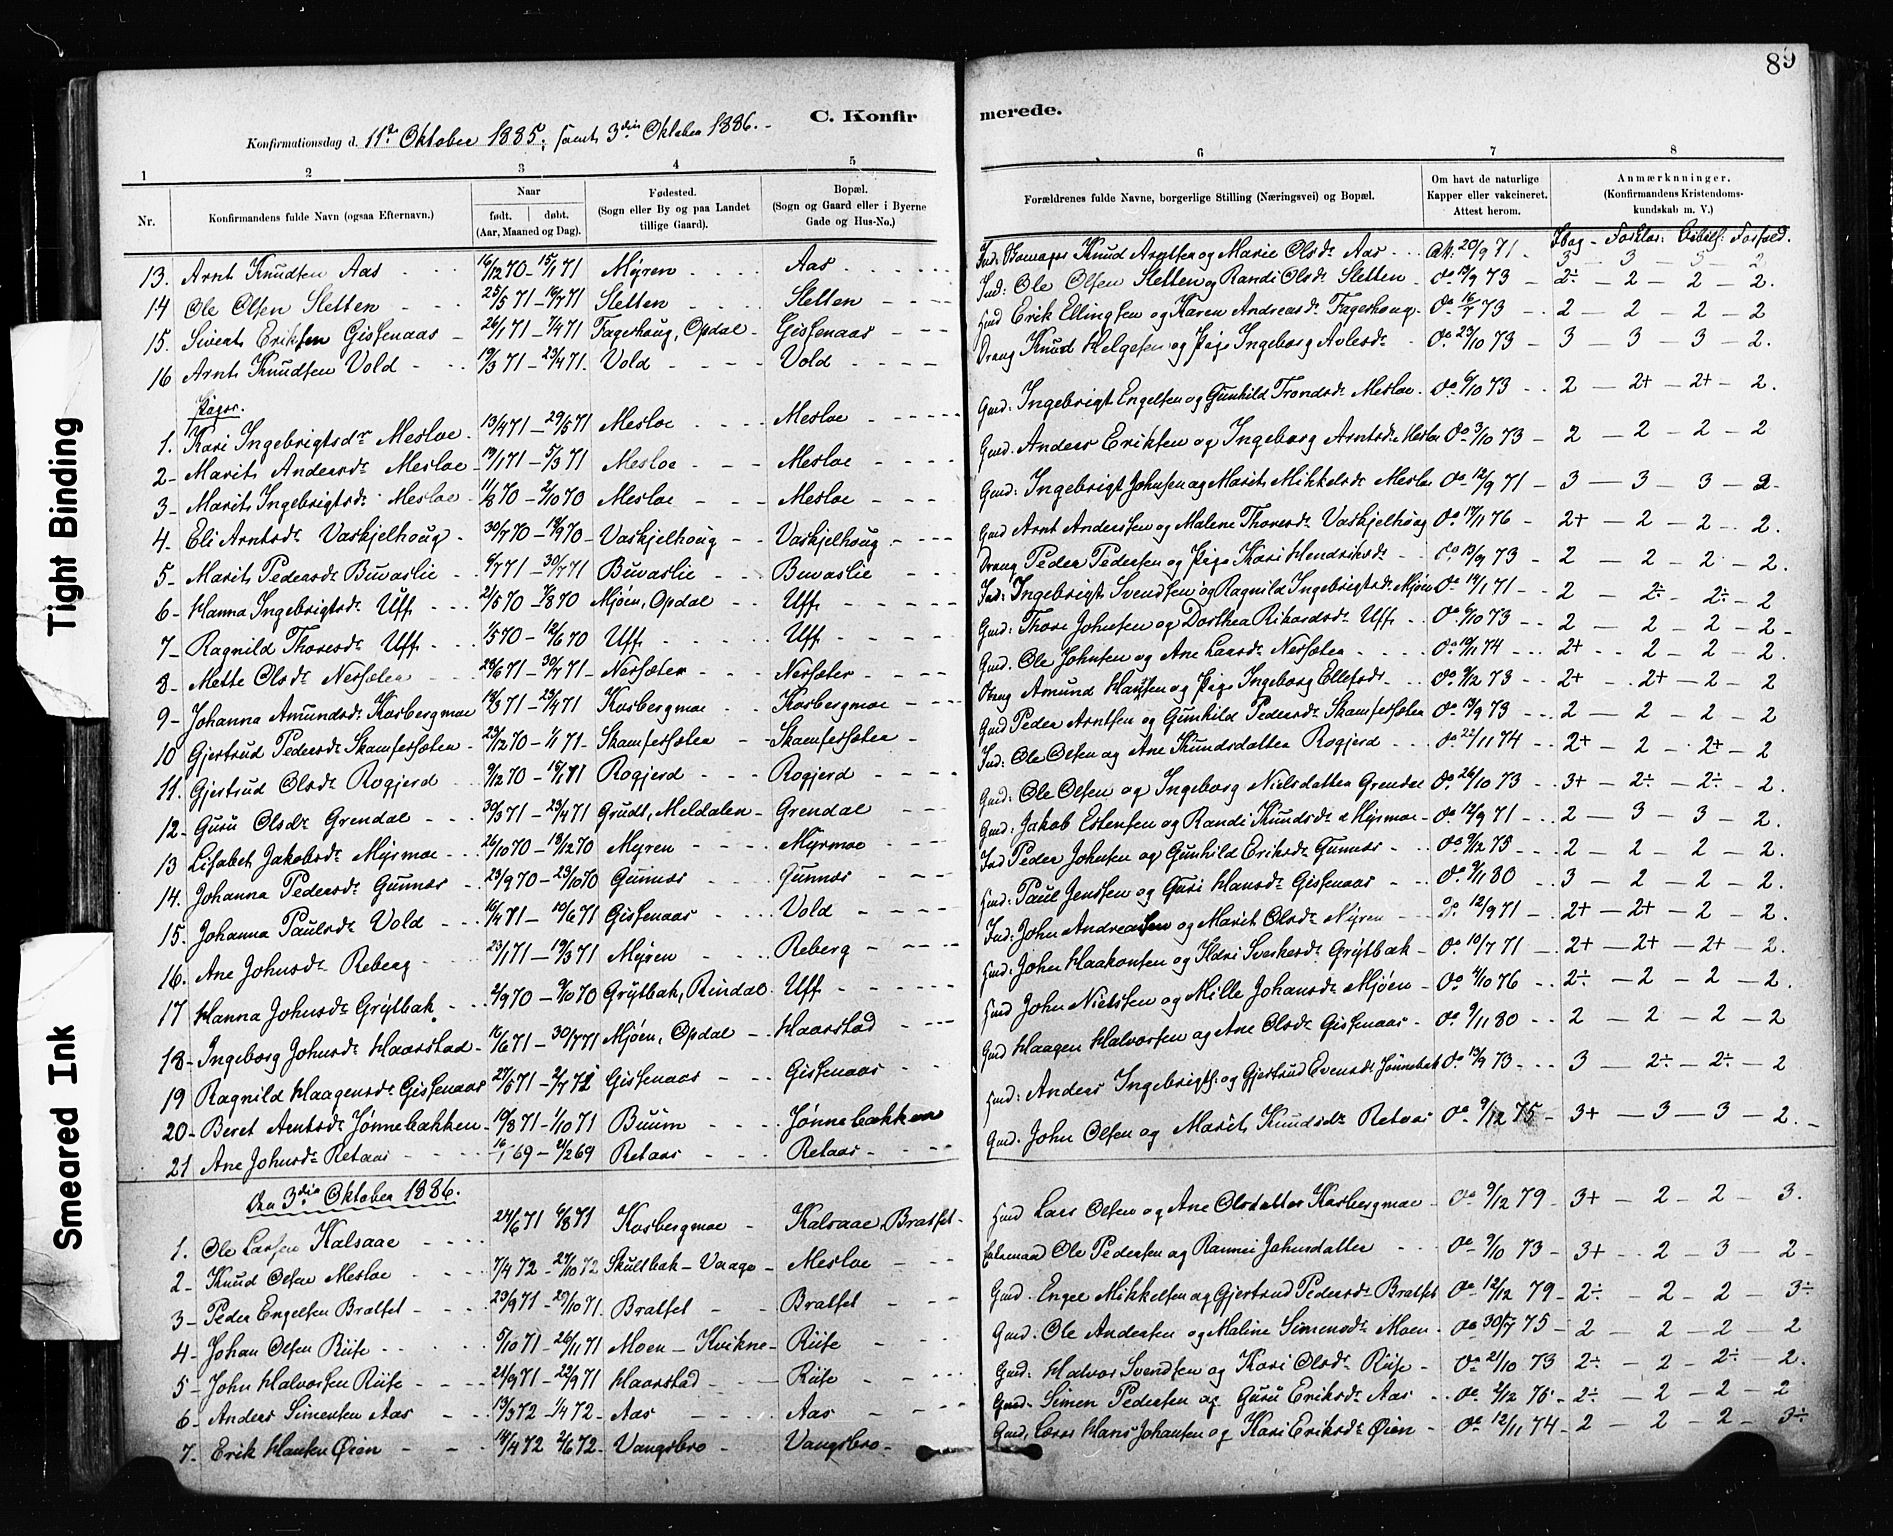 89
C. Konfirmerede.
Konfirmationsdag d. 11te Oktober 1885, samt 3die Oktober 1886.
1 2 3 4 5 6 7 8
Nr.
Konfirmandens fulde Navn (ogsaa Efternavn.)
Naar
født. døbt.
(Aar, Maaned og Dag).
Fødested.
(Sogn eller By og paa Landet
tillige Gaard).
Bopæl.
(Sogn og Gaard eller i Byerne
Gade og Hus-No.)
Forældrenes fulde Navne, borgerlige Stilling (Næringsvei) og Bopæl.
Om havt de naturlige
Kapper eller vakcineret.
Attest herom.
Anmærknninger.
(Konfirmandens Kristendoms-
kundskab m. V.)
13. Arnt Knudsen Aas 16/12 70 – 15/1 71 Myren Aas Knud Arntsen og Marie Olsdr Aas Att. 20/9 71 3 3 3 2
14 Ole Olsen Sletten 25/5 71 – 16/7 71 Sletten Sletten Ind: Ole Olsen Sletten og Randi Olsdr Sletten Do 19/9 73 2÷ – 2 – 2 – 2.
15. Sivert Eriksen Gissenaas 26/1 71 – 7/4 71 Fageshoug, Opdal Gissenaas Erik Ellingsen og Karen Andreasdr Fageshoug Do 16/7 73 2 – 2 – 2 – 2
16 Arnt Knudsen Vold 19/3 71 – 23/4 71 Vold Vold Drang Knud Helgesen og Pige Ingeborg Do 23/10 73 3 – 3 – 3 – 2.
Piger.
1. Kari Ingebrigtsdr Mesloe 13/4 71 – 29/5 71 Mesloe Mesloe Gmd: Ingebrigt Engelsen og Gunhild Trondsdr Mesloe Do 6/10 73 2 – 2+ – 2+ – 2.
2 Marit Andersdr Mesloe 19/1 71 – 5/3 71 Mesloe Mesloe Gmd. Anders Eriksen og Ingeborg Arntsdr Mesloe Do 3/10 73 2 – 2 – 2 – 2
3 Marit Ingebrigtsdr Mesloe 11/8 70 – 2/10 70 Mesloe Mesloe Gmd: Ingebrigt Johnsen og Marit Mikkelsdr Mesloe Do 12/9 71 3 – 3 – 3 – 2
4 Eli Arntsdr Vaskjelhoug 30/7 70 – 18/9 70 Vaskjelhoug Vaskjelhoug Gmd Arnt Anderssen og Malene Thoresdr Vaskjelhoug Do 17/11 76 2+ – 2 – 2 2.
5 Marit Pedersdr Buvaslie 6/7 71 – 30/7 71 Buvaslie Buvaslie Drang Peder Pedersen og Pige Kari Hendriksdr Do 19/9 73 2 – 2 – 2 – 2.
6 Hanna Ingebrigtsdr Uff 2/5 70 – 7/8 70 Mjøen, Opdal Uff Ind: Ingebrigt Svendsen og Ragnild Ingebrigtsdr Mjøen Do 19/1 71 2 – 2÷ – 2÷ – 2
7 Ragnild Thoresdr Uff 1/5 70 – 12/6 70 Uff Uff Gmd: Thore Johnsen og Dorthea Rikardsdr Uff Do 6/10 73 2 – 2 – 2 – 2
8 Mette Olsdr Nersæter 28/6 71 – 30/7 71 Nersæter Nersæter Gmd. Ole Johnsen og Ane Larsdr Nersæter Do 19/11 74 2+ 2 – 2 – 2.
9 Johanna Amundsdr Kosbergmoe 18/3 71 – 23/4 71 Kosbergmoe Kosbergmoe Drang Amund Hansen og Pige Ingeborg Ellefsdr Do 9/12 73 2+ 2+ – 2 – 2
10 Gjertrud Pedersdr Skamfersæter 23/12 70 – 1/1 71 Skamfersæter Skamfersæter Gmd Peder Arntsen og Gunhild Pedersdr Skamfersæter Do 19/9 73 2 – 2 – 2 – 2
11. Gjertrud Olsdr Rogjerd 9/12 70 – 15/1 71 Rogjerd Rogjerd Ind: Ole Olsen og Ane Knudsdatter Rogjerd Do 22/11 74 2+ – 2 2+ – 2
12 Guru Olsdr Grendal 30/3 71 – 23/4 71 Grudt, Meldalen Grendal Gmd: Ole Olsen og Ingeborg Nielsdatter Grendal Do 26/10 73 3+ – 2÷ – 2÷ – 2.
13 Lisabet Jakobsdr Myrmoe 26/10 70 – 19/12 70 Myren Myrmoe Gmd: Jakob Estensen og Randi Knudsdr Myrmoe Do 12/9 71 2 – 3 – 3 – 2.
14. Johanna Pedersdr Gunnes 23/9 70 – 23/10 70 Gunnes Gunnes Ind Peder Johnsen og Gunhild Eriksdr Gunnes Do 9/12 75 2 – 2 – 2 – 2.
15. Johanna Paulsdr Vold 16/4 71 – 10/6 71 Gissenaas Vold Paul Jenssen og Guri Hansdr Gissenaas Do 9/11 80 3 – 2 – 2 – 2.
16. Ane Johnsdr Reberg 23/1 71 – 19/3 71 Myren Reberg Ind: John Andreassen og Marit Olsdr Myren Do 12/9 71 2+ – 2+ – 2 – 2.
17 Hanna Johnsdr Grytbak 2/9 70 – 9/10 70 Grytbak, Rindal Uff John Haakonsen og Ildri Sverkesdr Grytbak Do 10/7 71 2+ – 2+ – 2+ – 2.
18 Ingeborg Johnsdr Haarstad 16/6 71 – 30/7 71 Mjøen, Opdal Haarstad John Nielssen og Mille Johansdr Mjøen Do 4/10 76 2÷ – 2 – 2 – 2.
19 Ragnild Haagensdr Gissenaas 27/5 71 – 2/7 71 Gissenaas Gissenaas Gmd Haagen Halvorsen og Ane Olsdr Gissenaas Do 9/11 80 2 – 2 – 2 – 2
20 Beret Arntsdr Jønnebakken 19/8 71 – 1/10 71 Buum Jønnebakken Anders Ingebrigts. og Gjertrud Evensdr Jønnebak Do 13/9 73 3 2÷ – 2÷ – 2
21 Ane Johnsdr Retaas 16/1 69 – 21/2 69 Retaas Retaas Gmd. John Olsen og Marit Knudsdr Retaas Do 9/12 75 3+ – 3 – 3 – 2.
Den 3die Oktober 1886.
1. Ole Larsen Kalsaae 24/6 71 6/8 71 Kosbergmoe Kalsaae, Bratset Lars Olsen og Ane Olsdatter Kosbergmoe Do 9/12 79 3+ – 2 – 2 – 3.
2 Knud Olsen Mesloe 7/4 72 – 27/10 72 Skultbak – Vaage Mesloe Ole Pedersen og Rannei Johnsdatter Do 9/10 73 3+ 2 – 3 – 2
3 Peder Engelsen Bratset 23/9 71 – 29/10 71 Bratset Bratset Gmd. Engel Mikkelsen og Gjertrud Pedersdr Bratset Do 12/12 79 2÷ – 2 – 2 – 3÷
4 Johan Olsen Riise 5/10 71 – 26/11 71 Moen – Kvikne Riise Gmd. Ole Andersen og Maline Simensdr Moen Do 30/7 75 2 – 2 – 2 – 2
5 John Halvorsen Riise 21/9 71 – 22/9 71 Haarstad Riise Gmd. Halvor Svendsen og Kari Olsdr Riise Do 21/10 73 2÷ – 2 – 2÷ – 2.
6 Anders Simensen Aas 13/3 72 – 1/4 72 Aas Aas Gmd. Simen Pedersen og Guru Eriksdr Aas Do 2/12 75 2÷ – 2 – 2 – 2
7 Erik Hansen Øien 14/4 72 2/6 72 Vangsbro Vangsbro Gmd, Lærer Hans Johansen og Kari Eriksdr Øien Do 12/11 74 2 – 2 – 2 – 3÷
Tight Binding
Smeared Ink